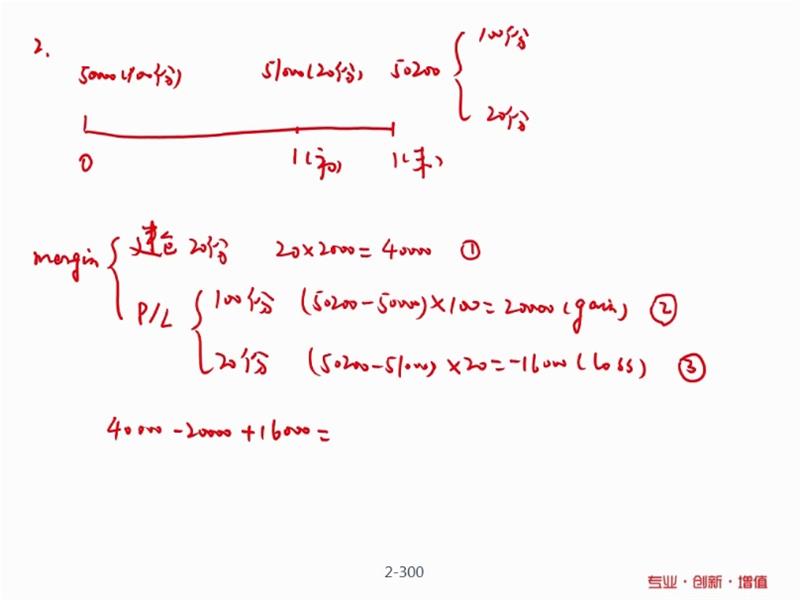 2.
50000(100份) 51000(20份) 50200 { 100份
20份
0 1(初) 1(末)
margin { 建仓 20份 20×2000=40000 ①
P/L { 100份 (50200-50000)×100=20000(gain) ②
20份 (50200-51000)×20=-16000(loss) ③
40000-20000+16000=
2-300
专业·创新·增值